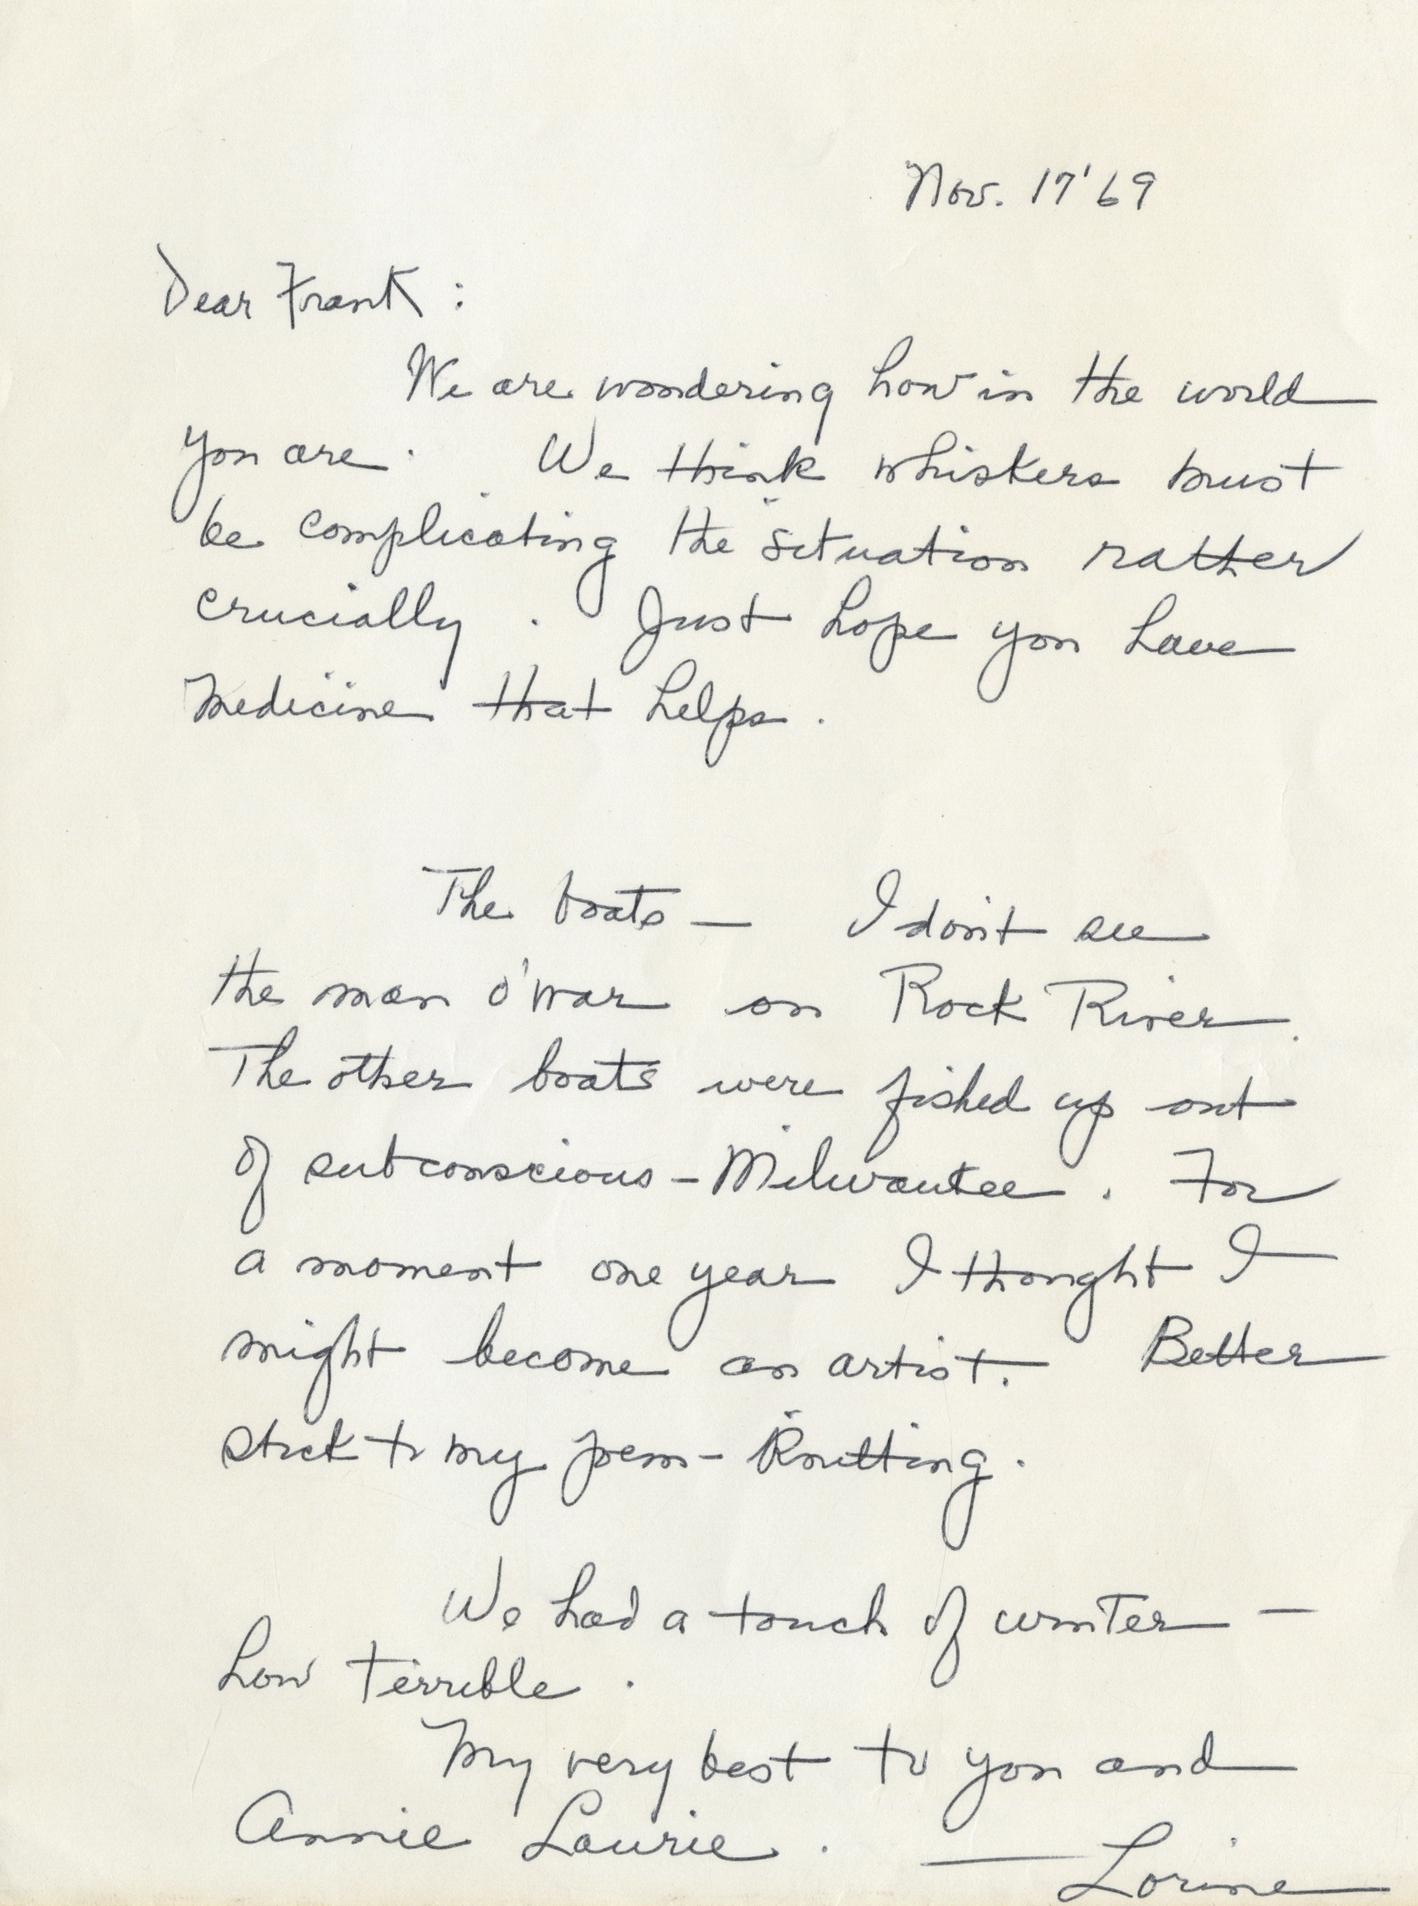 Nov. 17 '69
Dear Frank :
We are wondering how in the world
you are. We think whiskers must
be complicating the situation rather
crucially. Just hope you have
medicine that helps.
The boats — I don't see
the man o'war on Rock River.
The other boats were fished up out
of subconscious - Milwaukee. For
a moment one year I thought I
might become an artist. Better
stick to my poem-knitting.
We had a touch of winter —
how terrible.
My very best to you and
Annie Laurie.
— Lorine